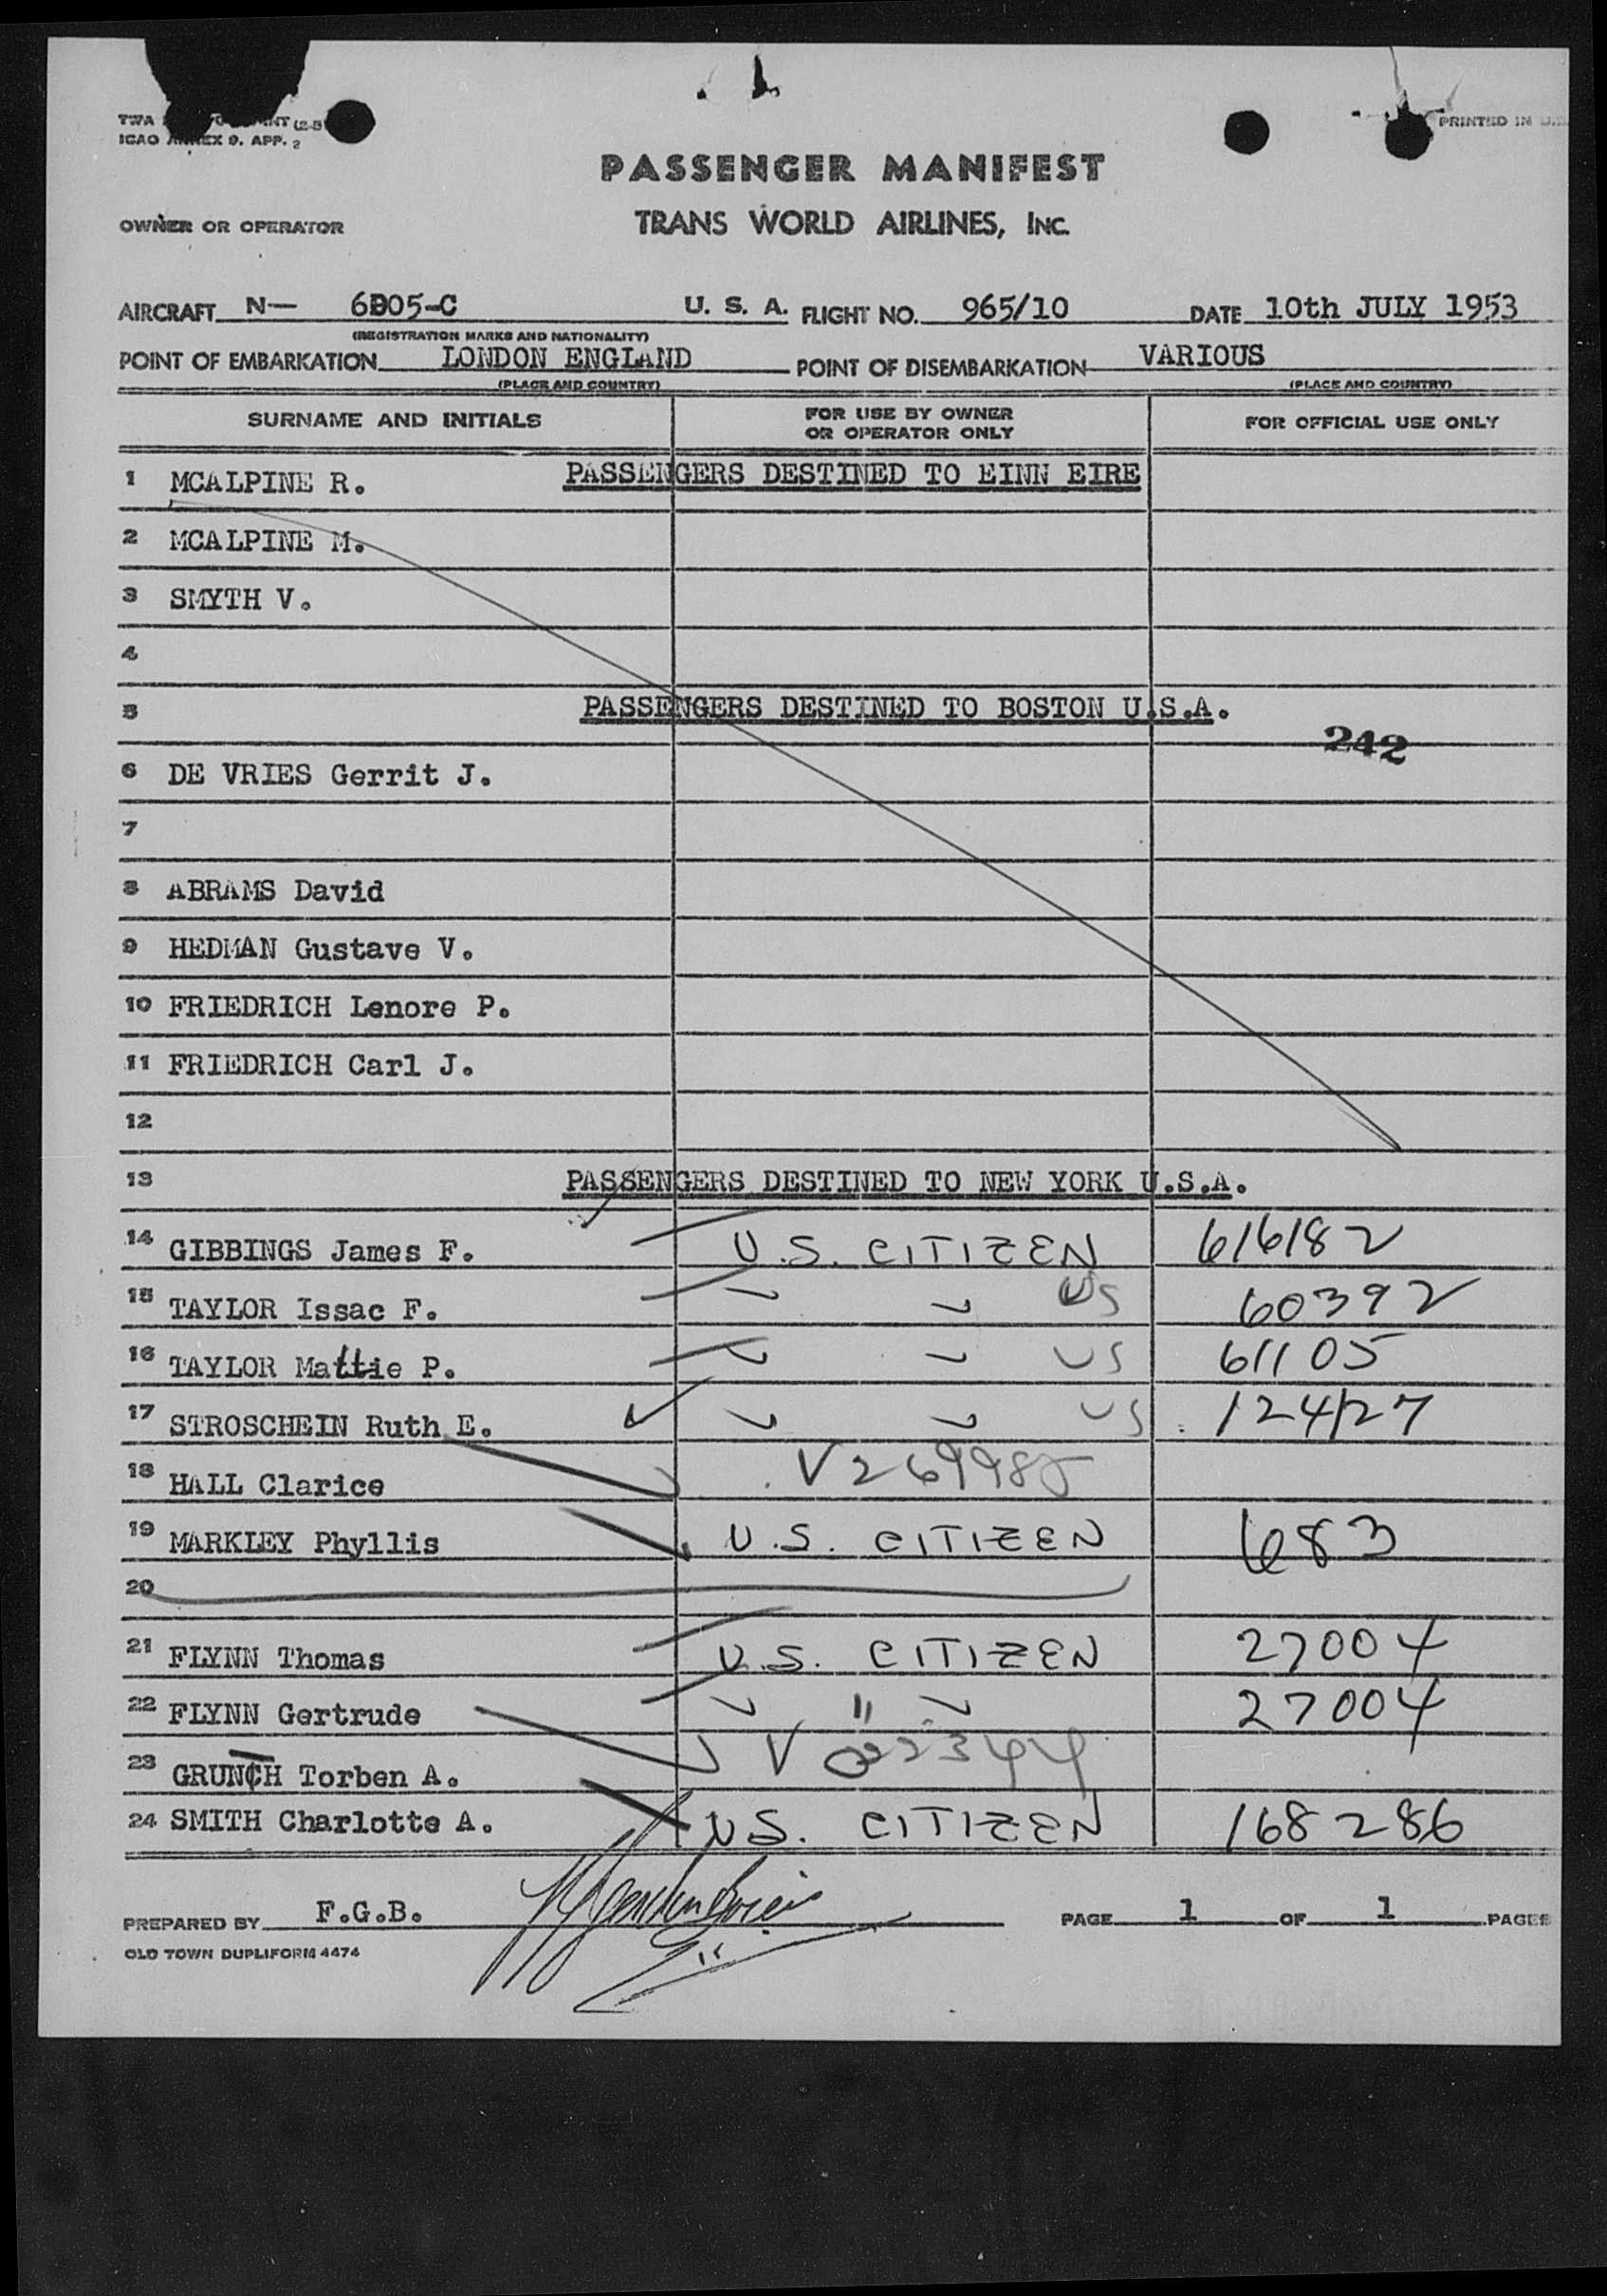 TWA
ICAO ANNEX 9. APP. 2
PRINTED IN U.S.
PASSENGER MANIFEST
OWNER OR OPERATOR TRANS WORLD AIRLINES, INC.
AIRCRAFT N— 6905-C U. S. A. FLIGHT NO. 965/10 DATE 10th JULY 1953
(REGISTRATION MARKS AND NATIONALITY)
POINT OF EMBARKATION LONDON ENGLAND POINT OF DISEMBARKATION VARIOUS
(PLACE AND COUNTRY) (PLACE AND COUNTRY)
SURNAME AND INITIALS FOR USE BY OWNER OR OPERATOR ONLY FOR OFFICIAL USE ONLY
PASSENGERS DESTINED TO EINN EIRE
1 MCALPINE R.
2 MCALPINE M.
3 SMYTH V.
4
5 PASSENGERS DESTINED TO BOSTON U.S.A.
242
6 DE VRIES Gerrit J.
7
8 ABRAMS David
9 HEDMAN Gustave V.
10 FRIEDRICH Lenore P.
11 FRIEDRICH Carl J.
12
13 PASSENGERS DESTINED TO NEW YORK U.S.A.
14 GIBBINGS James F. U.S. CITIZEN 616182
15 TAYLOR Issac F. " " US 60392
16 TAYLOR Mattie P. " " US 61105
17 STROSCHEIN Ruth E. " " US 124127
18 HALL Clarice V269985
19 MARKLEY Phyllis U.S. CITIZEN 683
20
21 FLYNN Thomas U.S. CITIZEN 27004
22 FLYNN Gertrude " " " 27004
23 GRUNTH Torben A.
24 SMITH Charlotte A. U.S. CITIZEN 168286
PREPARED BY F.G.B. PAGE 1 OF 1 PAGES
OLD TOWN DUPLIFORM 4474